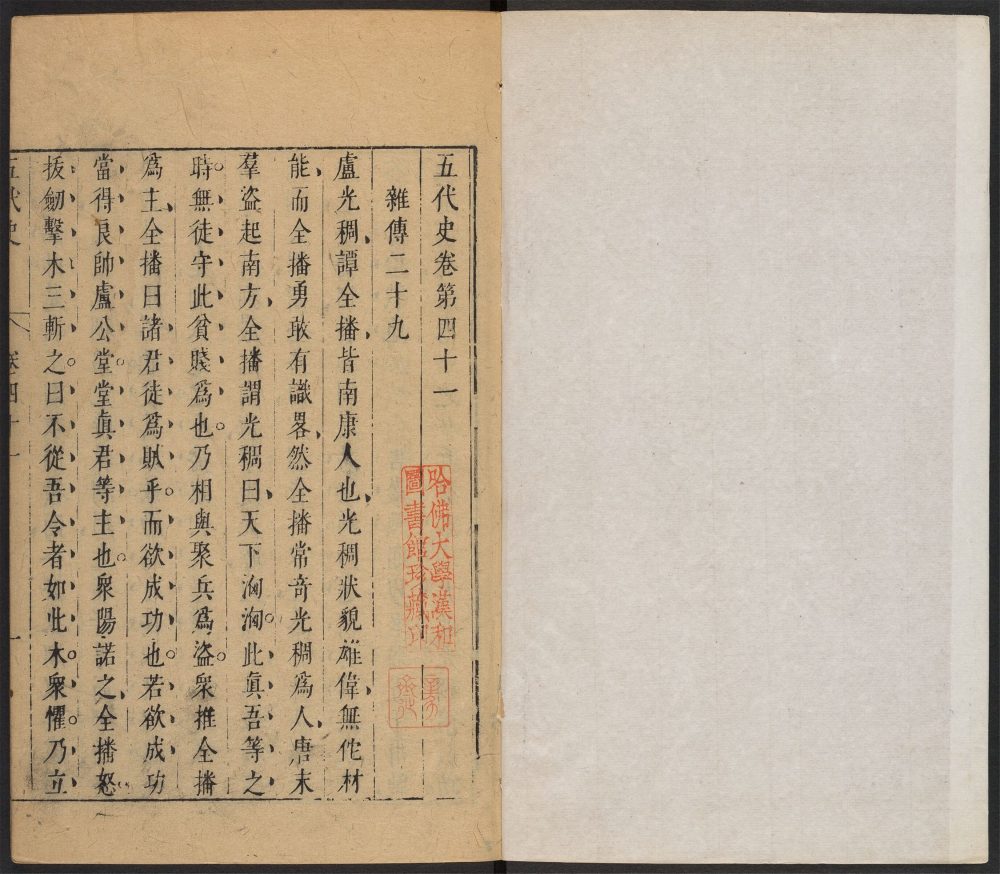 五代史卷第四十一
雜傳二十九
盧光稠譚全播皆南康人也光稠狀貌雄偉無佗材
能而全播勇敢有識畧然全播常奇光稠爲人唐末
羣盜起南方全播謂光稠曰天下洶洶此眞吾等之
時無徒守此貧賤爲也乃相與聚兵爲盜衆推全播
爲主全播曰諸君徒爲賊乎而欲成功也若欲成功
當得良帥盧公堂堂眞君等主也衆陽諾之全播怒
拔劒擊木三斬之曰不從吾令者如此木衆懼乃立
五代史
卷四十一
一
哈佛大學漢和
圖書館珍藏印